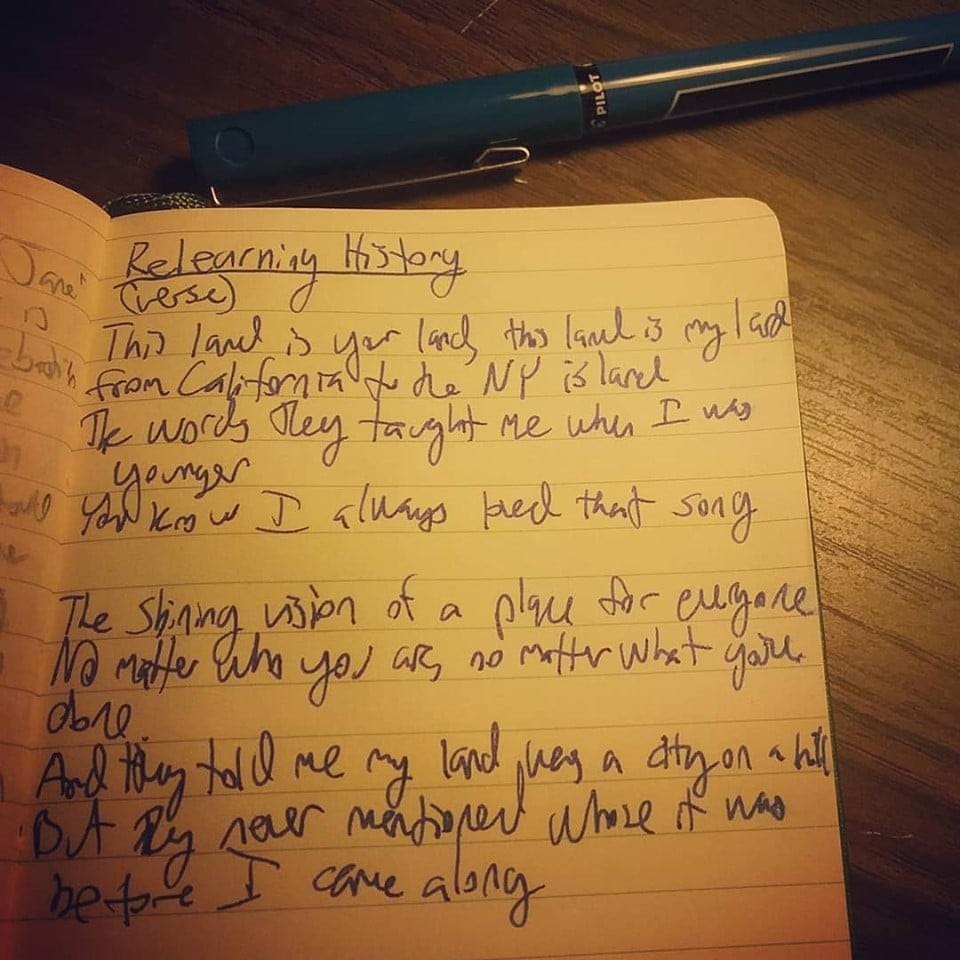 PILOT
Relearning History
(verse)
This land is your land, this land is my land
from California to the NY island
The words they taught me when I was
younger
You know I always loved that song
The shining vision of a place for everyone
No matter who you are, no matter what you've
done.
And they told me my land was a city on a hill
But they never mentioned whose it was
before I came along